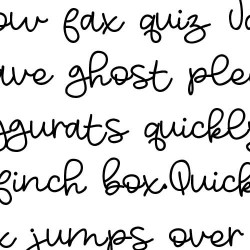 ow fax quiz Ja
ave ghost ple
ggurats quickly
finch box. Quick
x jumps over